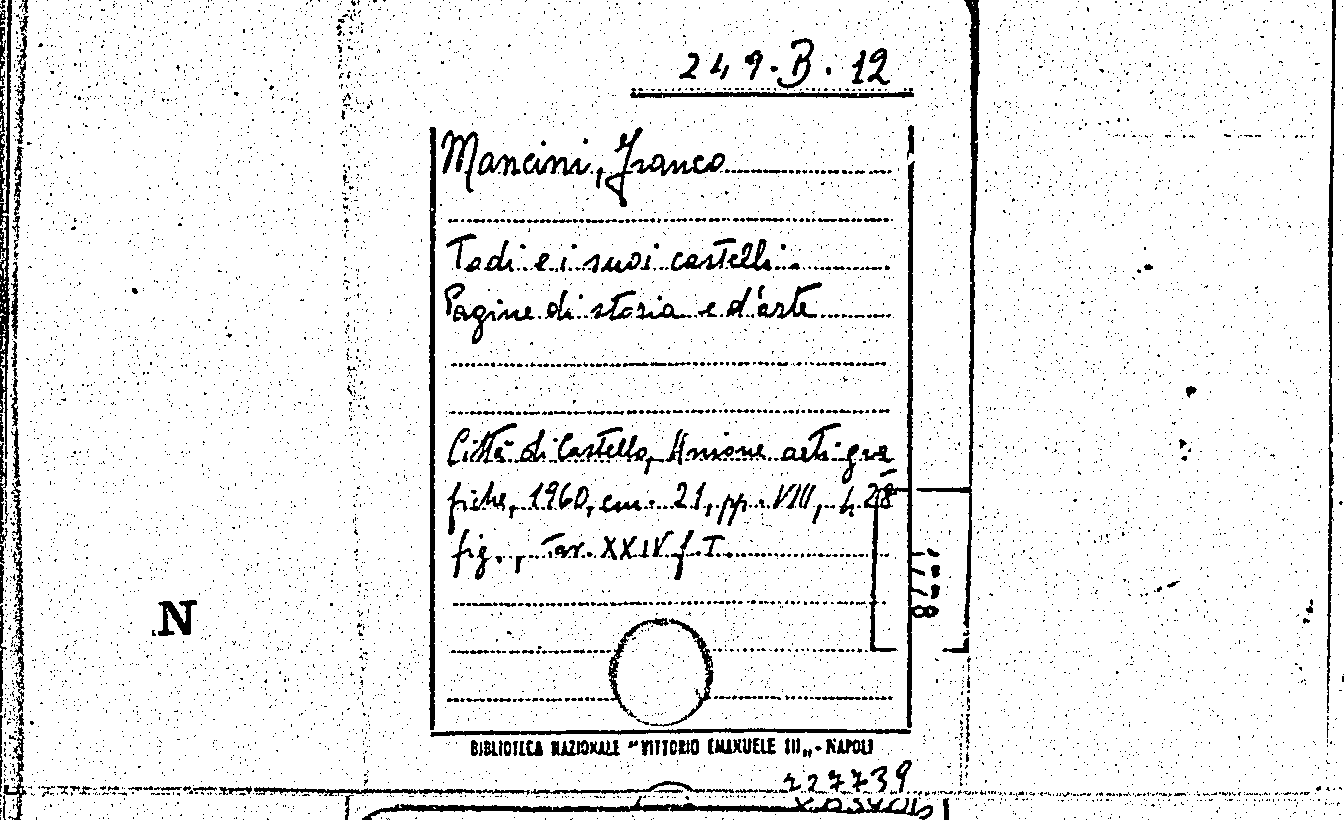 249.B.12
Mancini, Franco
Todi e i suoi castelli.
Pagine di storia e d'arte
Città di Castello, Unione arti gra
fiche, 1960, cm. 21, pp. VIII, 28
fig., Tav. XXIV f.T.
1778
N
BIBLIOTECA NAZIONALE "VITTORIO EMANUELE III„ - NAPOLI
227739